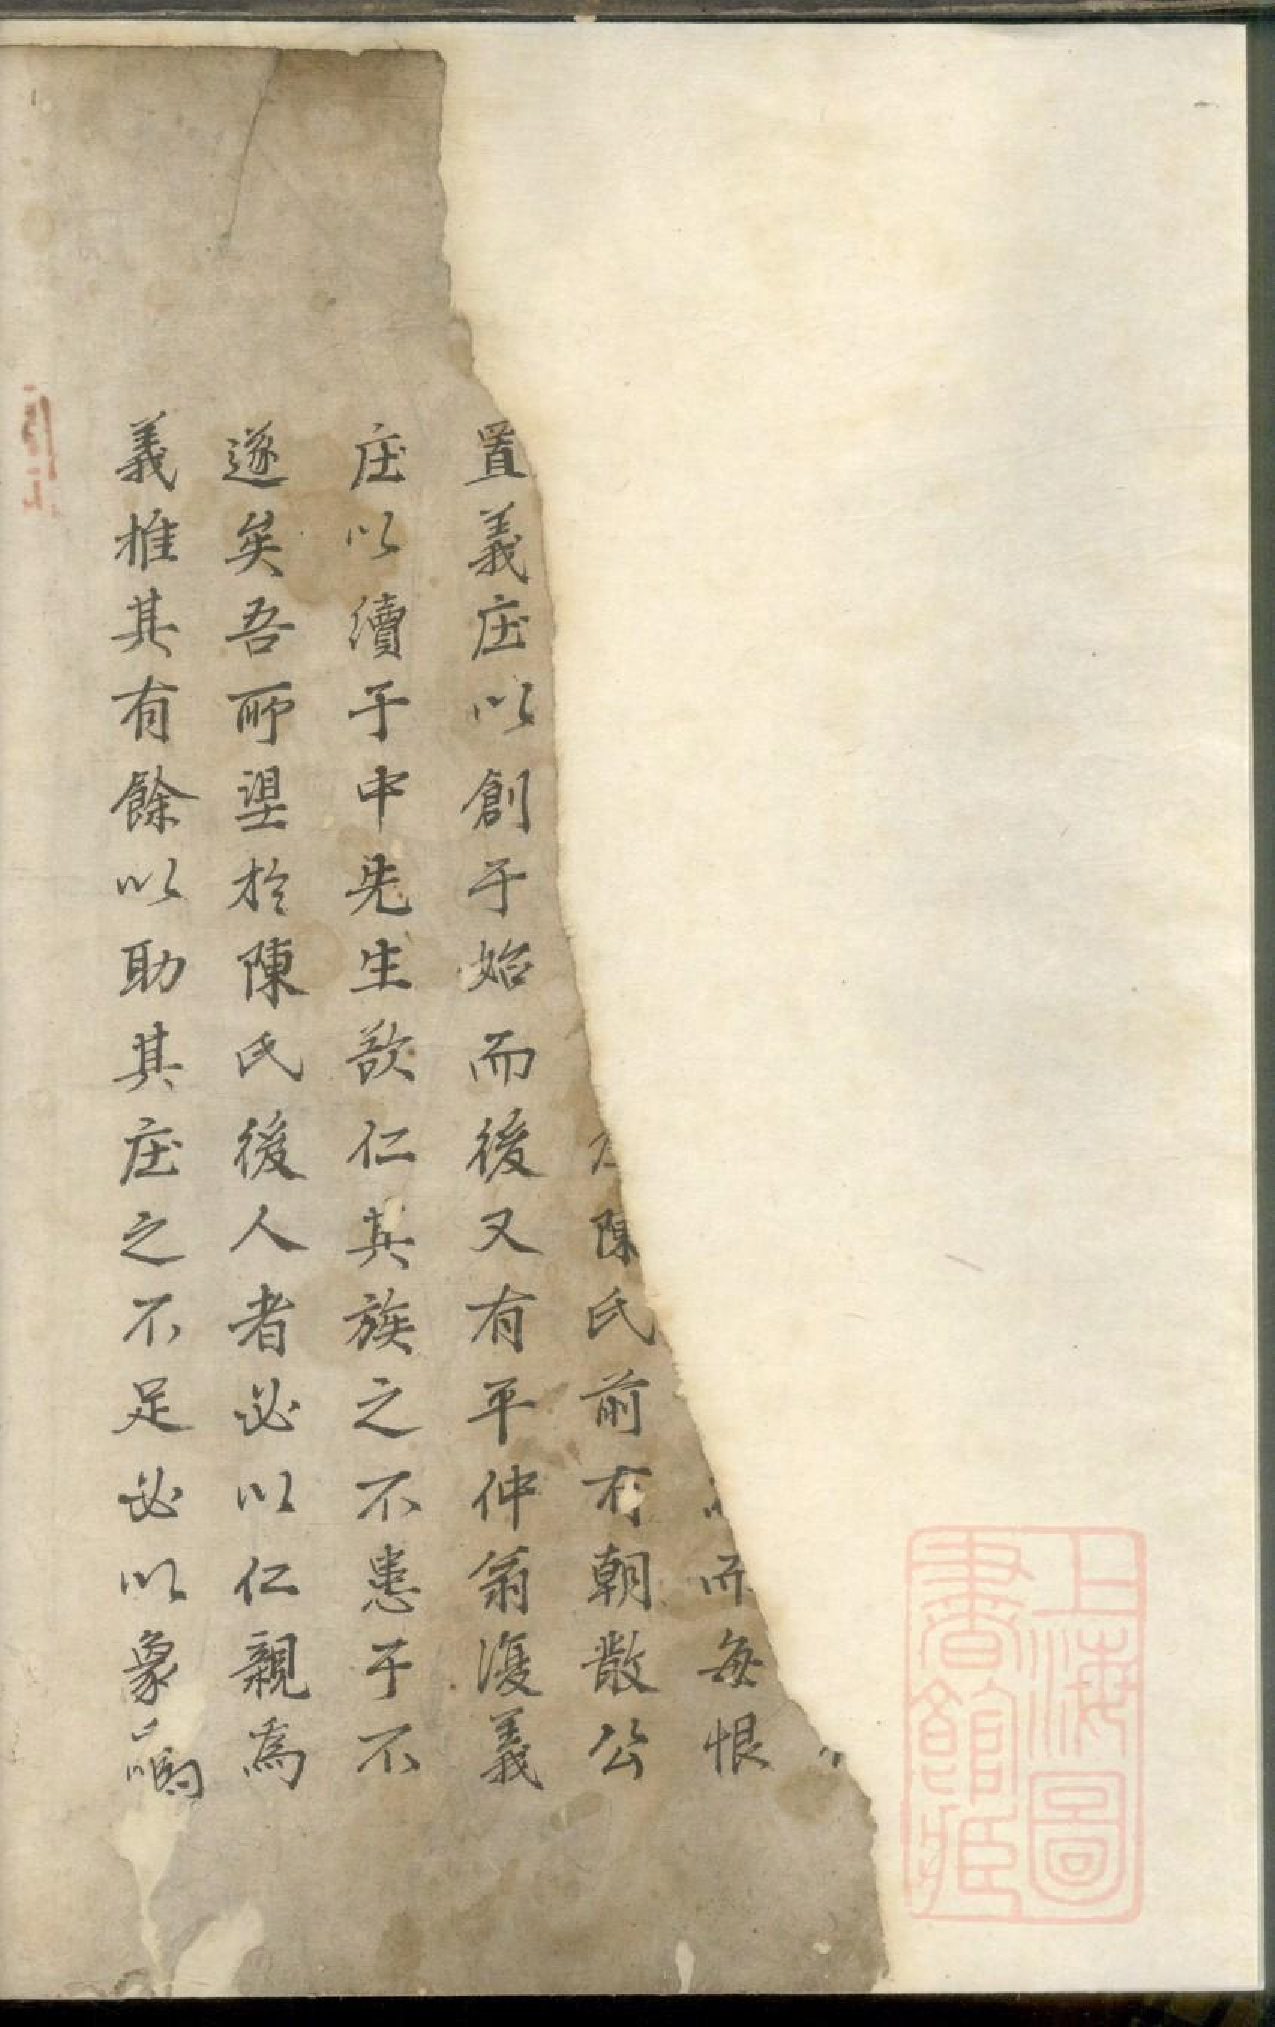 而每恨
陳氏前有朝散公
置義庄以創于始而後又有平仲翁復義
庄以續于中先生欲仁其族之不患于不
遂矣吾所望於陳氏後人者必以仁親為
義推其有餘以助其庄之不足必以象
上海圖
書館藏